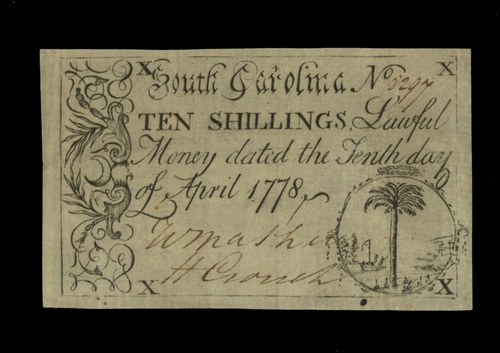 X South Carolina No 8297 X
TEN SHILLINGS, Lawful
Money dated the Tenth day
of April 1778,
H Crouch
X X